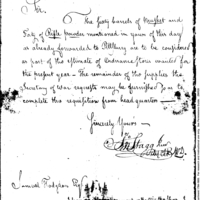 Sir.
The forty barrels of Musket and
Fifty of Rifle powder mentioned in yours of this day
as already forwarded to Pittsburg are to be considered
as part of the estimate of Ordnance Store wanted for
the present year. The remainder of the supplies the
Secretary of War requests may be furnished so as to
complete the requisition from head quarters.
Sincerely Yours
Jno Stagg Junr
Samuel Hodgdon Esq